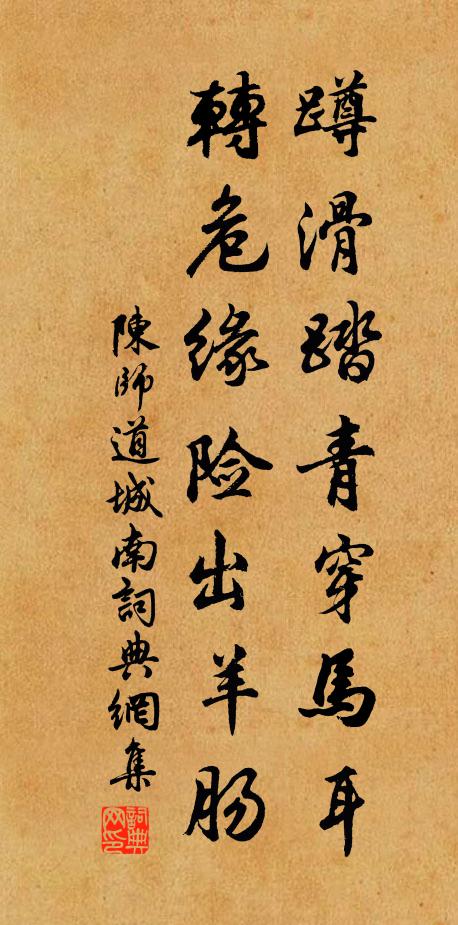 蹲滑踏青穿馬耳
轉危缘險出羊肠
陳師道城南詞典網集
詞典网印